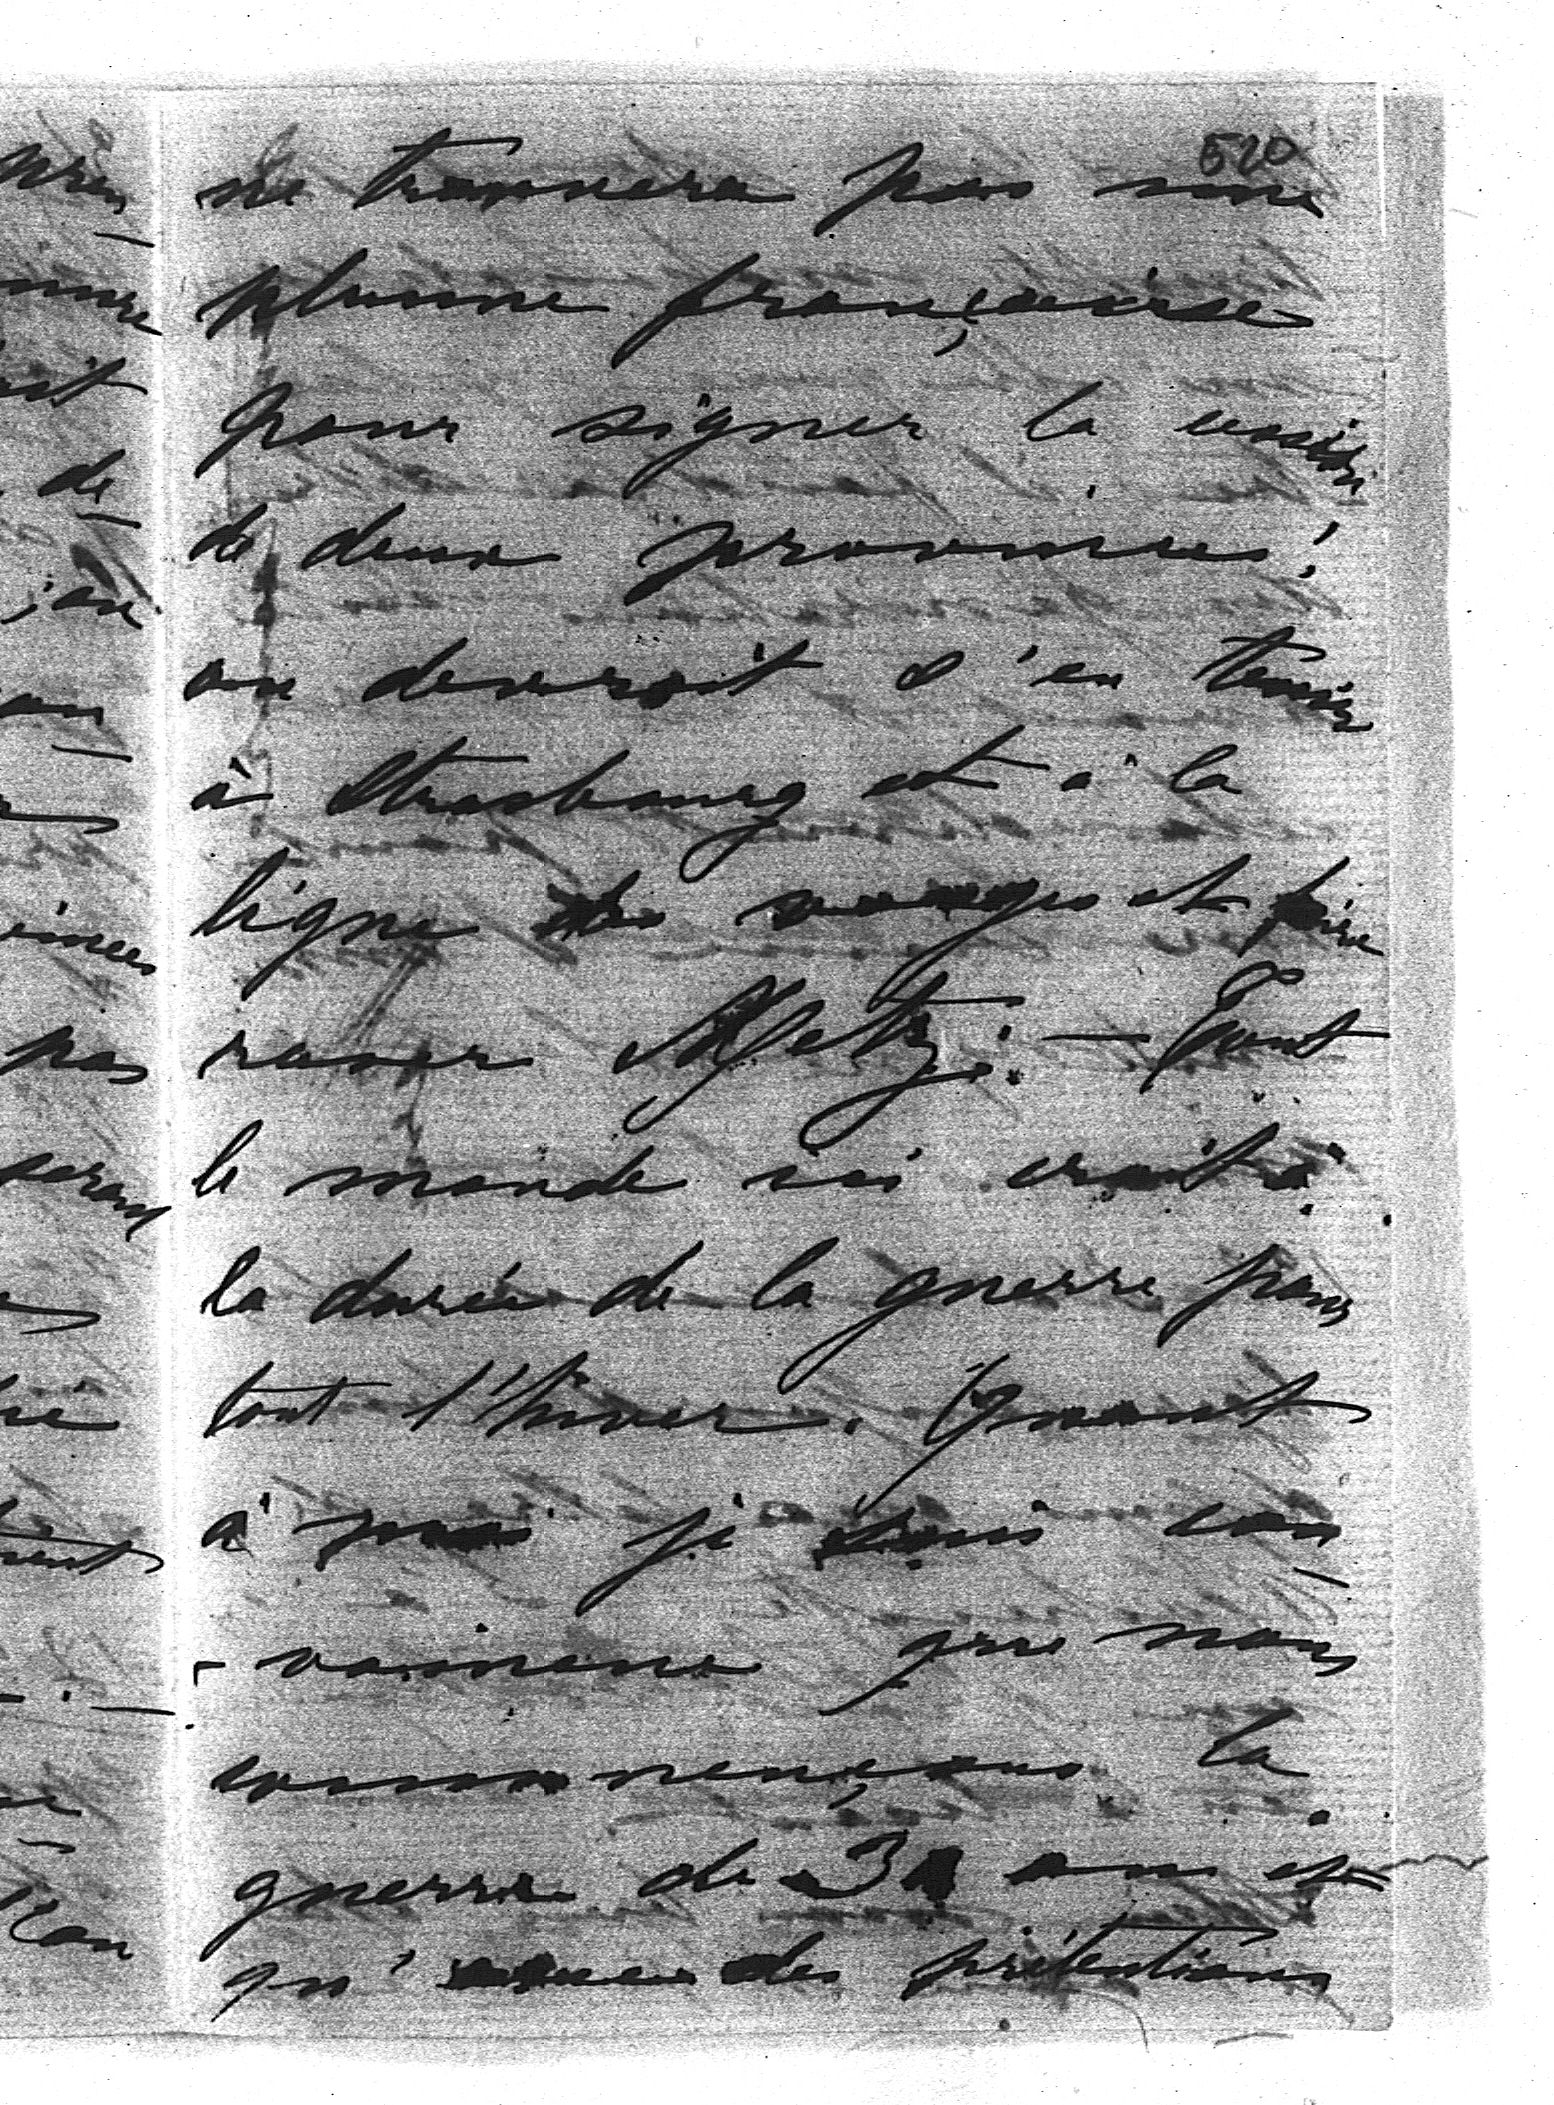 520
ne trouvera pas une
plume française
pour signer la cession
de deux provinces!
on devrait s'en tenir
à Strasbourg et à la
ligne des vosges et faire
raser Metz. — Tout
le monde ici croit à
la durée de la guerre pour
tout l'hiver. Quant
à moi je suis con
- vaincu que nous
commençons la
guerre de 30 ans et
qu' avec des prétentions
pas
de